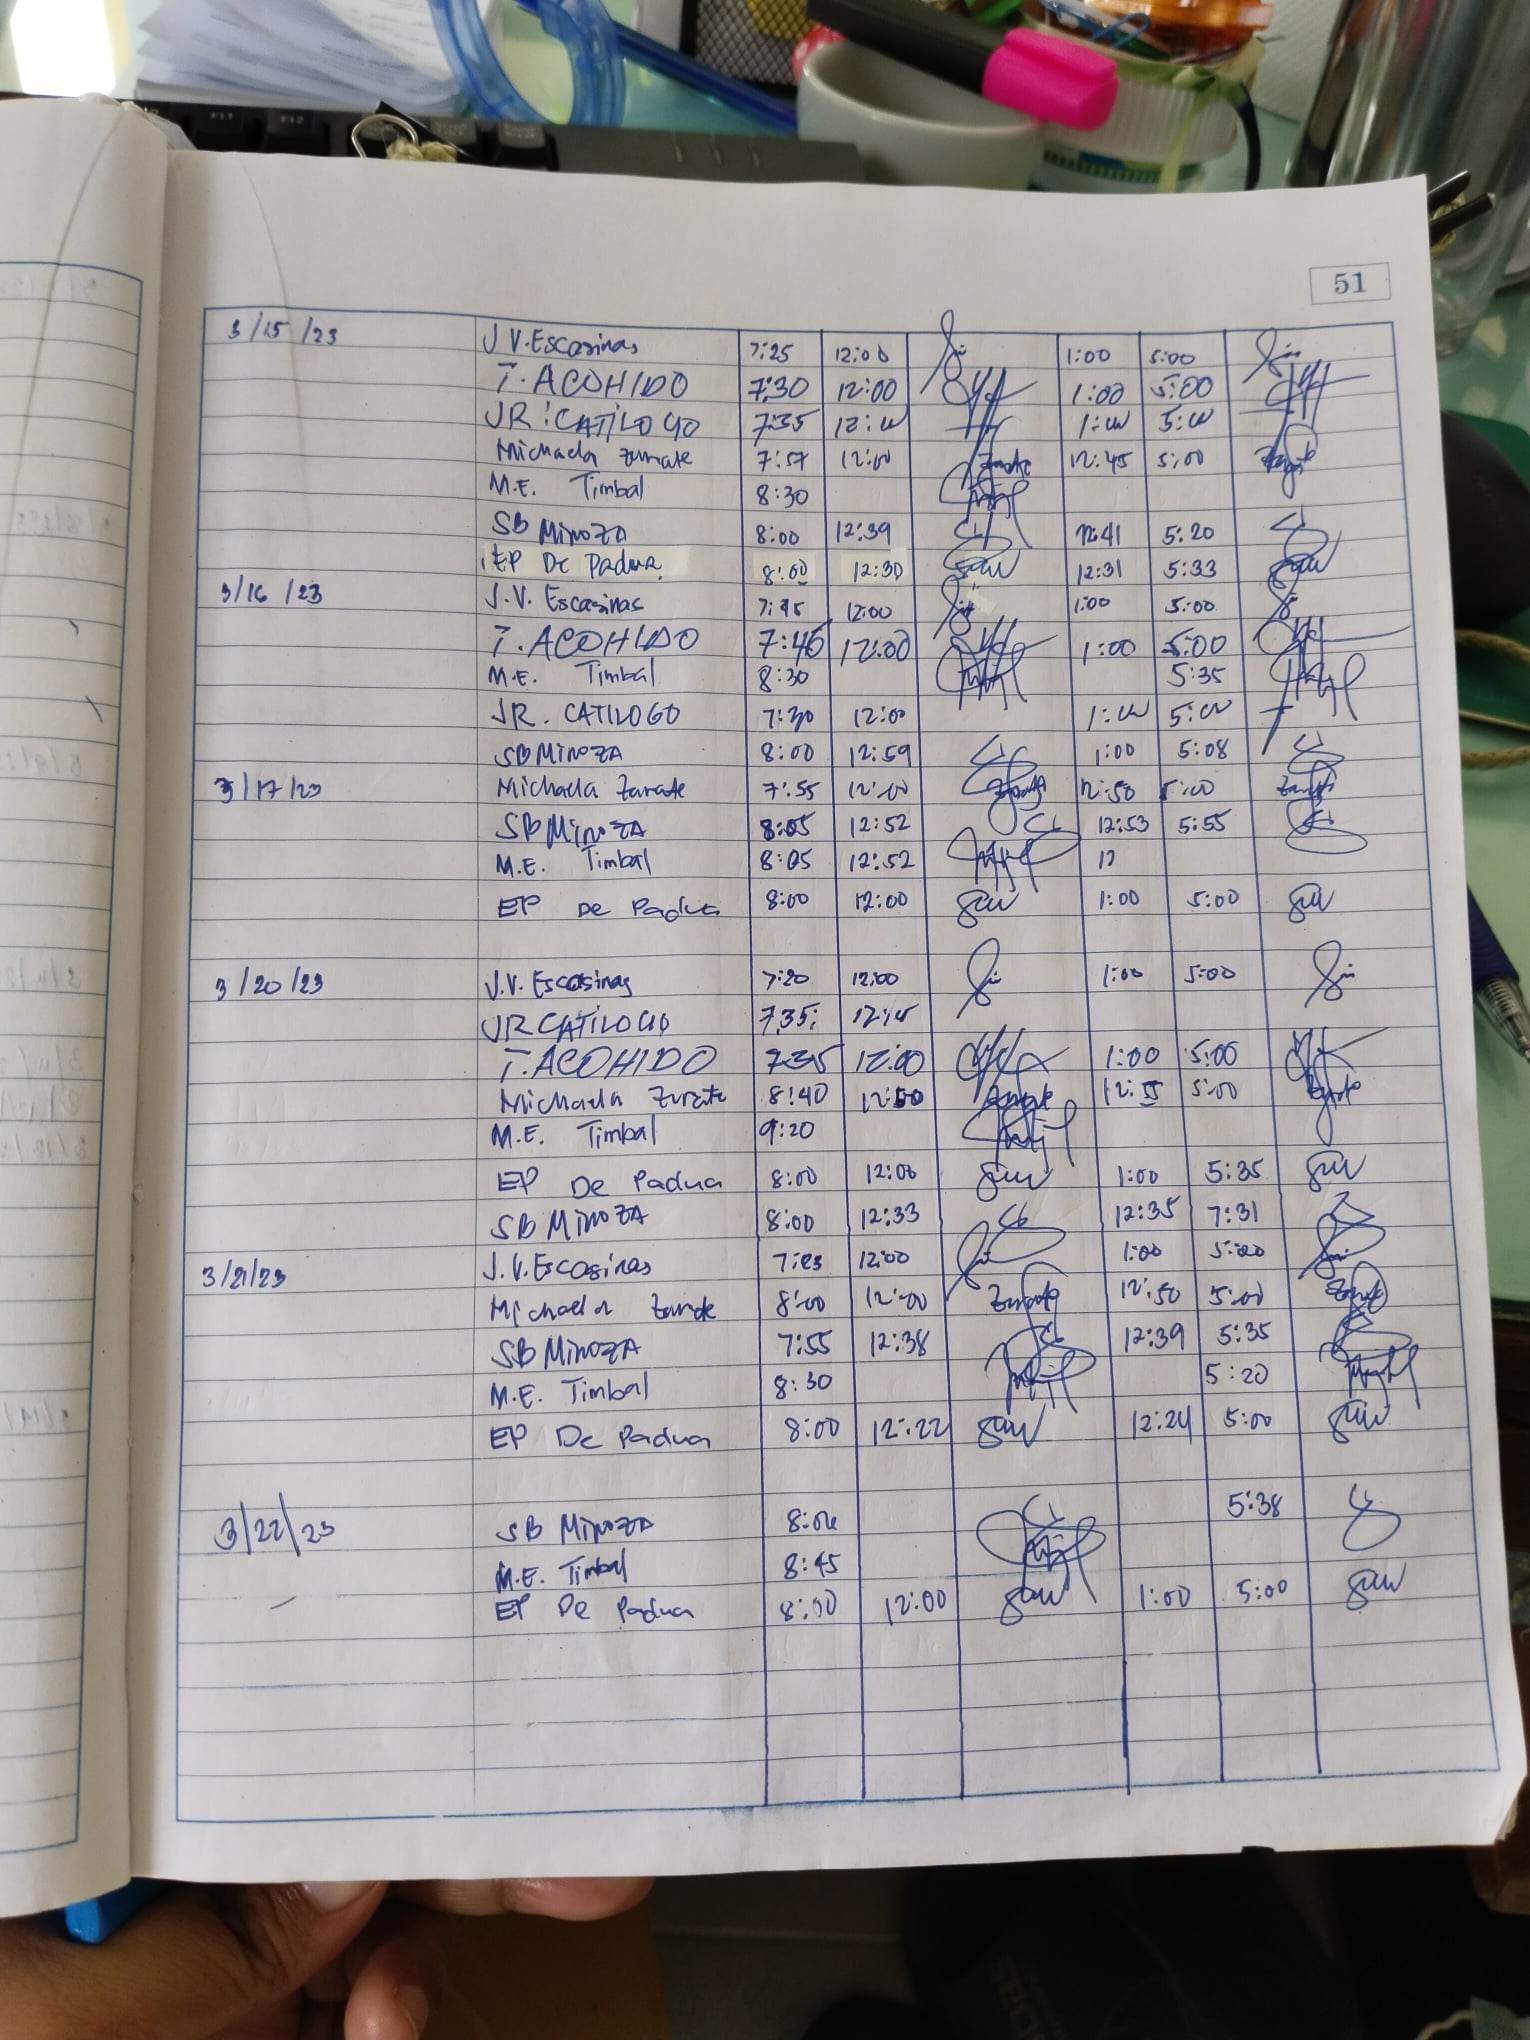 51
3/15/23 J.V. Escasinas 7:25 12:00 1:00 5:00
T. ACOHIDO 7:30 12:00 1:00 5:00
JR. CATILOGO 7:35 12:00 1:00 5:00
Michaela Zarate 7:57 12:00 Zarate 12:45 5:00 Zarate
M.E. Timbal 8:30
SB MINOZA 8:00 12:39 12:41 5:20
EP De Padua 8:00 12:30 12:31 5:33
3/16/23 J.V. Escasinas 7:45 12:00 1:00 5:00
T. ACOHIDO 7:46 12:00 1:00 5:00
M.E. Timbal 8:30 5:35
JR. CATILOGO 7:30 12:00 1:00 5:00
SB MINOZA 8:00 12:59 1:00 5:08
3/17/23 Michaela Zarate 7:55 12:00 12:50 5:00
SB MINOZA 8:05 12:52 12:53 5:55
M.E. Timbal 8:05 12:52 12
EP De Padua 8:00 12:00 1:00 5:00
3/20/23 J.V. Escasinas 7:20 12:00 1:00 5:00
JR CATILOGO 7:35
T. ACOHIDO 7:35 12:00 1:00 5:00
Michaela Zarate 8:40 12:50 Zarate 12:55 5:00 Zarate
M.E. Timbal 9:20
EP De Padua 8:00 12:00 1:00 5:35
SB MINOZA 8:00 12:33 12:35 7:31
3/21/23 J.V. Escasinas 12:00 1:00 5:00
Michaela Zarate 8:00 12:00 Zarate 12:50 5:00 Zarate
SB MINOZA 7:55 12:38 12:39 5:35
M.E. Timbal 8:30 5:20
EP De Padua 8:00 12:22 12:24 5:00
3/22/23 SB MINOZA 5:38
M.E. Timbal 8:45
EP De Padua 8:00 12:00 1:00 5:00